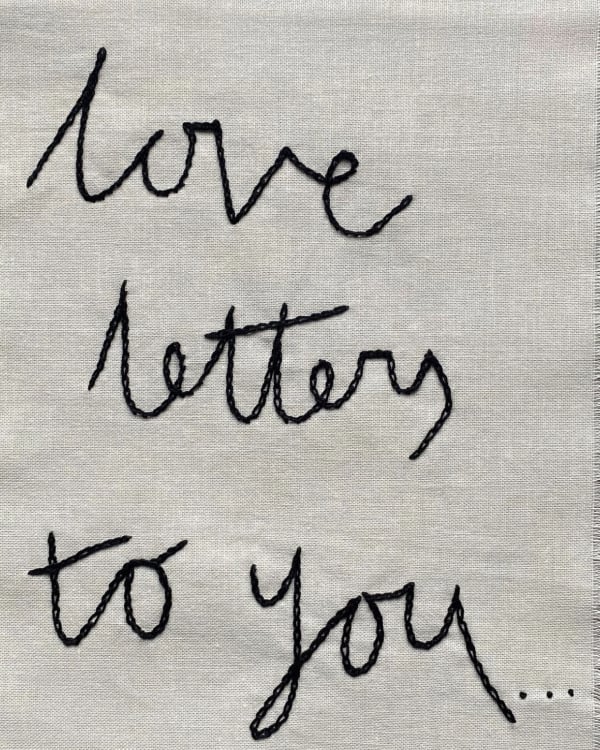 love
letters
to you...